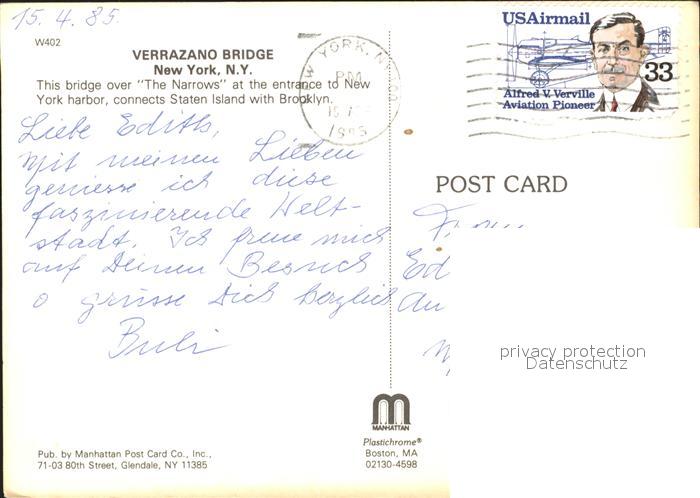 15.4.85
W402
VERRAZANO BRIDGE
New York, N.Y.
This bridge over "The Narrows" at the entrance to New
York harbor, connects Staten Island with Brooklyn.
Liebe Edith,
mit meinen Lieben
geniesse ich diese
faszinierende Welt-
stadt. Ich freue mich
auf Deinen Besuch
grüsse Dich herzlich
USAirmail
33
Alfred V. Verville
Aviation Pioneer
YORK, N
PM
1985
POST CARD
Ed
privacy protection
Datenschutz
MANHATTAN
Plastichrome®
Boston, MA
02130-4598
Pub. by Manhattan Post Card Co., Inc.,
71-03 80th Street, Glendale, NY 11385